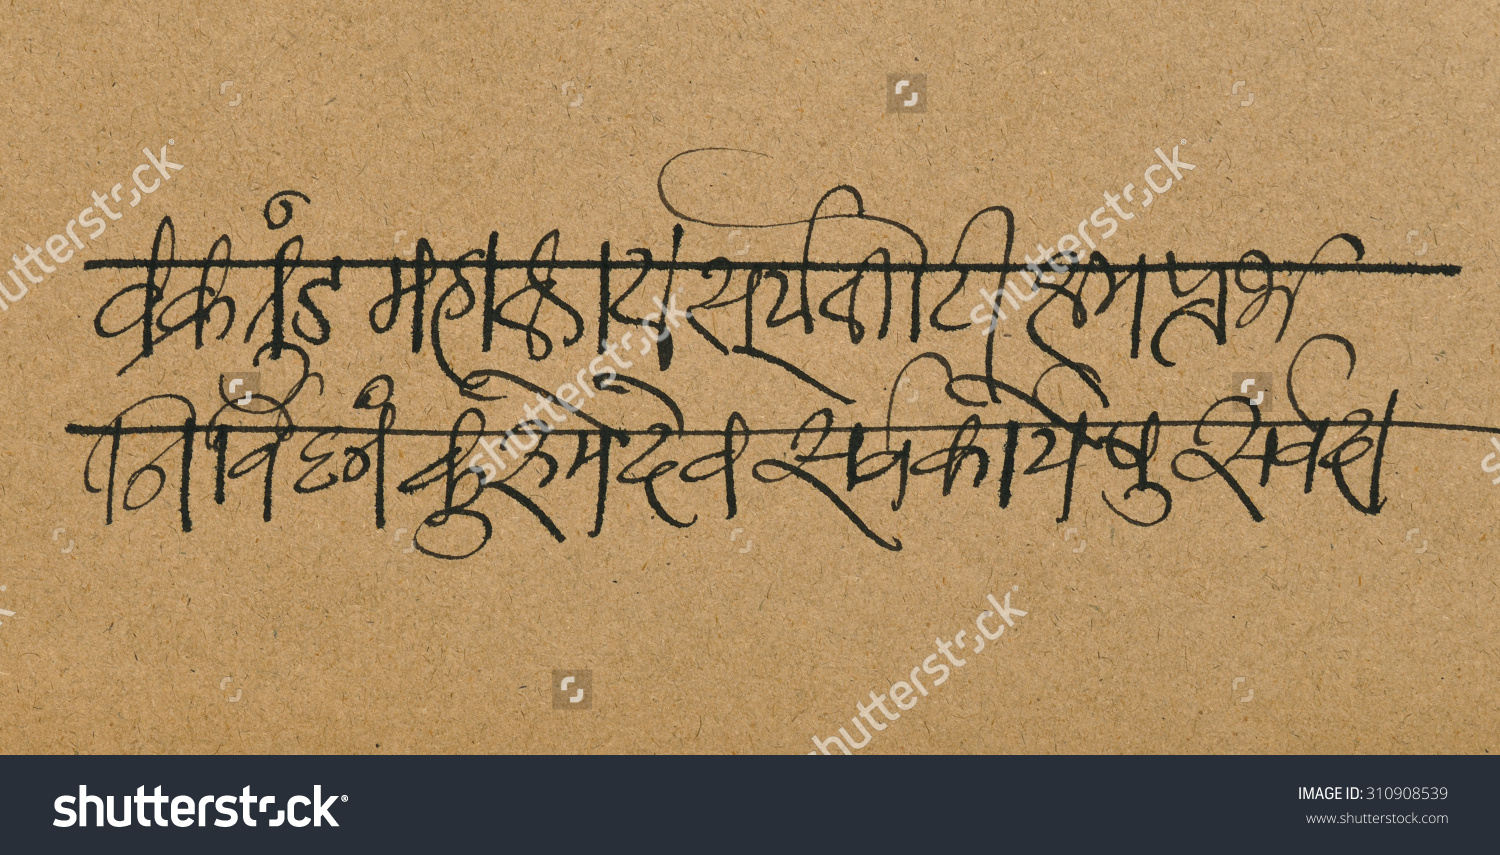 वक्रतुंड महाकाय सूर्यकोटी समप्रभ
निर्विघ्नं कुरुमेदेव सर्वकार्येषु सर्वदा
shutterstock
shutterstock
shutterstock
shutterstock
shutterstock®
IMAGE ID: 310908539
www.shutterstock.com